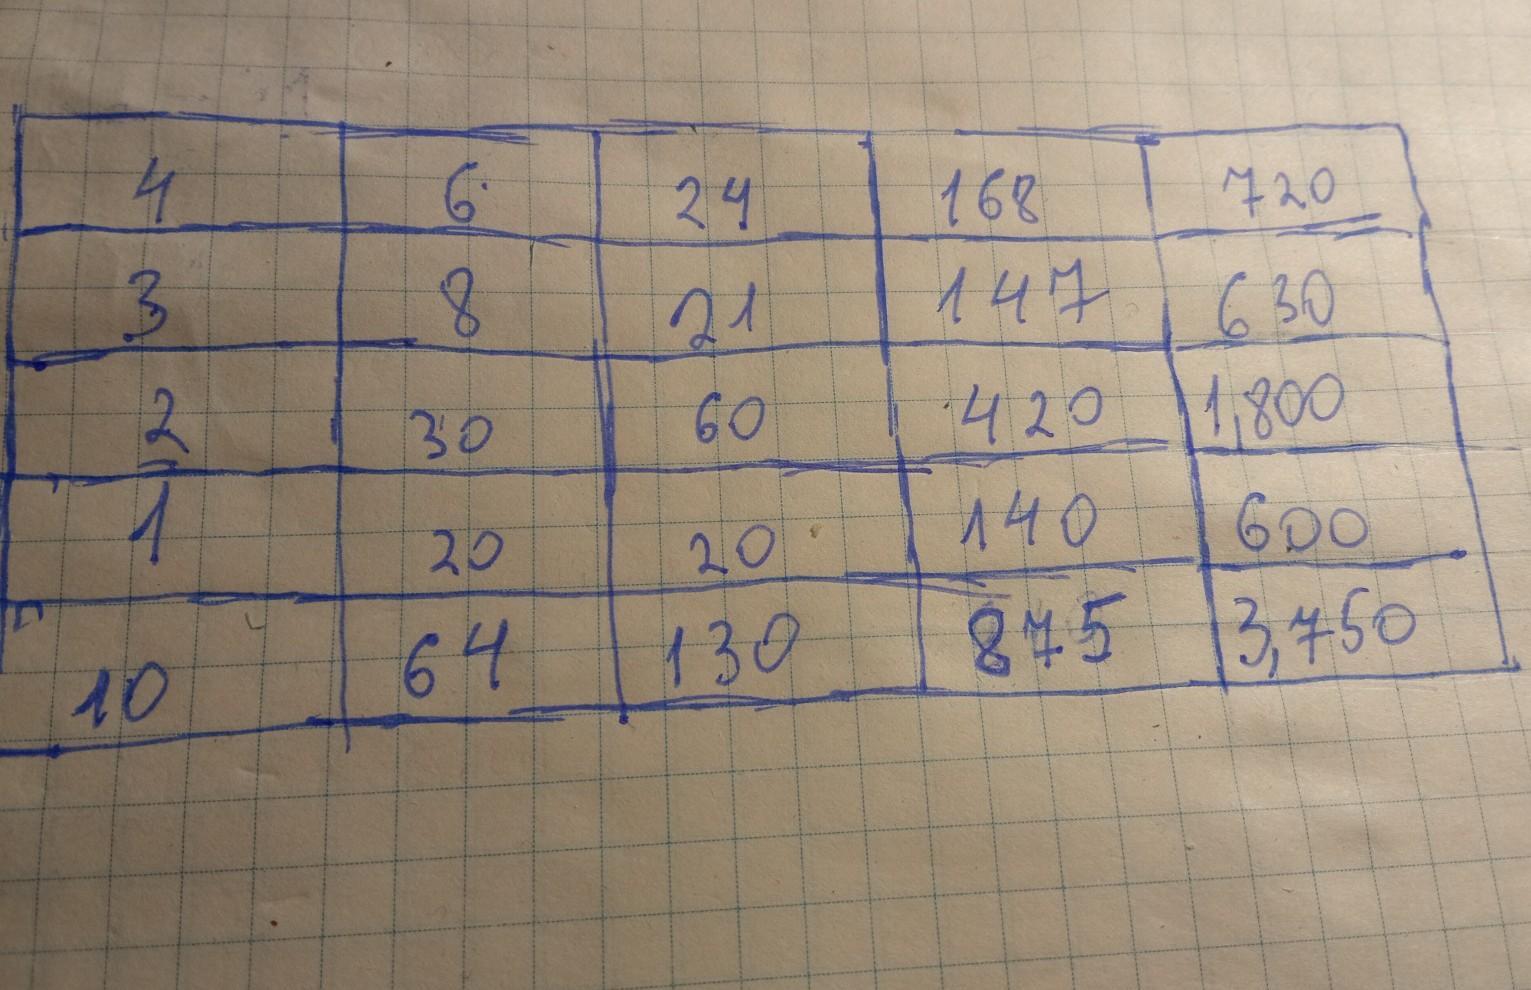 4 6 24 168 720
3 8 21 147 630
2 30 60 420 1,800
1 20 20 140 600
10 64 130 875 3,750